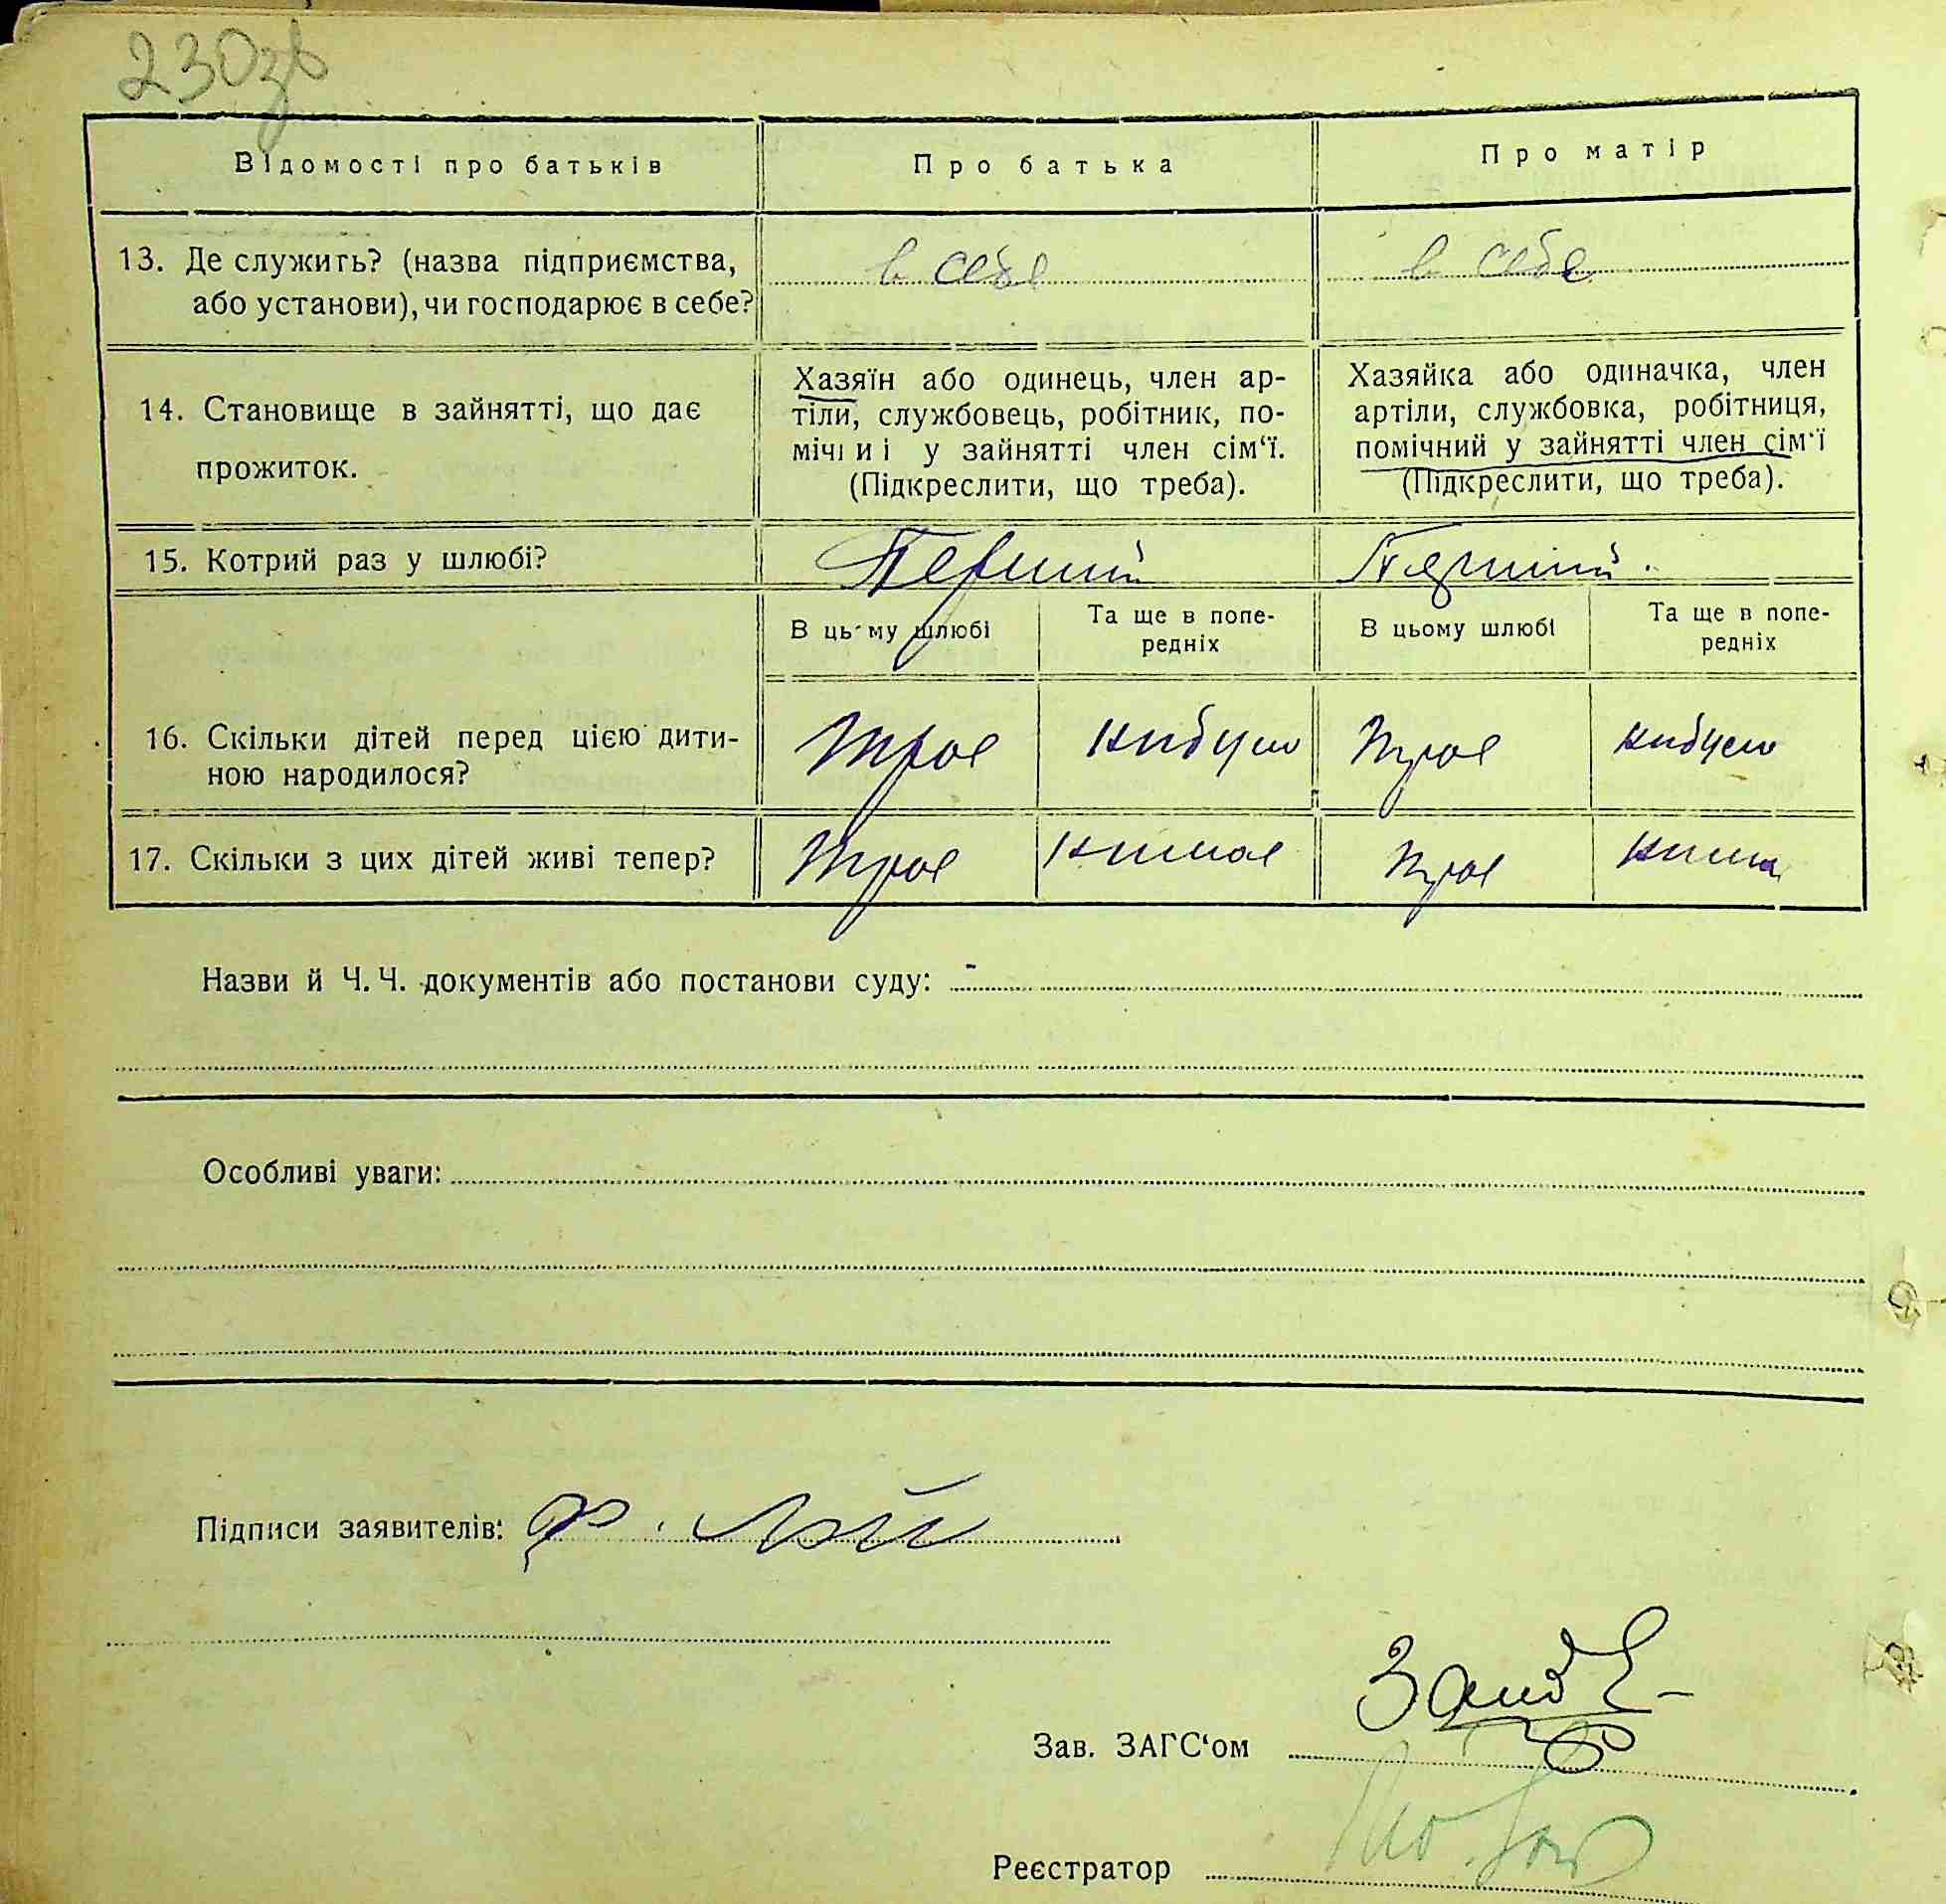 230зв
Відомості про батьків
Про батька
Про матір
13. Де служить? (назва підприємства,
або установи), чи господарює в себе?
в себе
в себе
14. Становище в зайнятті, що дає
прожиток.
Хазяїн або одинець, член ар-
тіли, службовець, робітник, по-
мічиі у зайнятті член сім‘ї.
(Підкреслити, що треба).
Хазяйка або одиначка, член
артіли, службовка, робітниця,
помічний у зайнятті член сім‘ї
(Підкреслити, що треба).
15. Котрий раз у шлюбі?
Перший
Перший.
В цьму шлюбі
Та ще в попе-
редніх
В цьому шлюбі
Та ще в попе-
редніх
16. Скільки дітей перед цією дити-
ною народилося?
Троє
Троє
17. Скільки з цих дітей живі тепер?
Троє
Троє
Назви й Ч. Ч. документів або постанови суду: -
Особливі уваги:
Підписи заявителів:
Зав. ЗАГС‘ом
Реєстратор